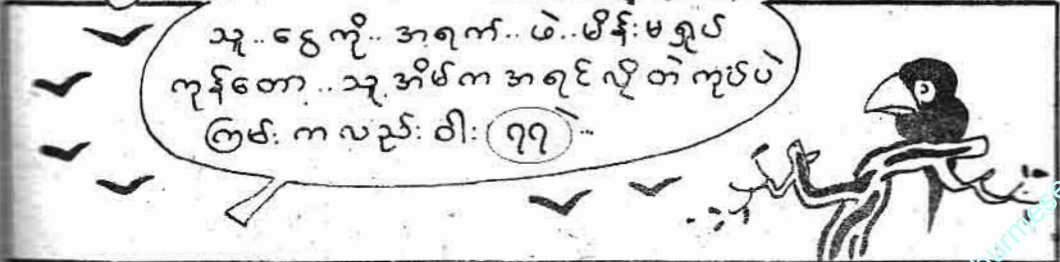 သူ..ငွေကို..အရက်..ဖဲ..မိန်းမရှုပ်
ကုန်တော..သူ့အိမ်ကအရင်လိုတဲကုပ်ပဲ
ကြမ်းကလည်းဝါး(၇၇)..